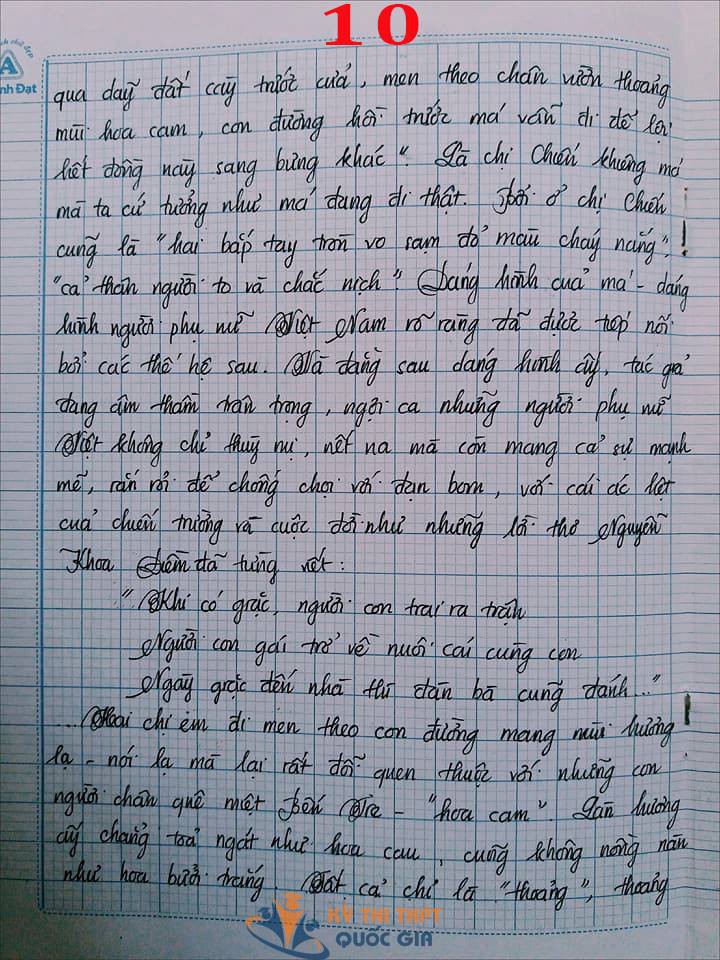 10
A
nh Đạt
qua dãy đất cày trước cửa, men theo chân vườn thoảng
mùi hoa cam, con đường hồi trước má vẫn đi để lội
hết đồng này sang bưng khác". Là chị Chiến khiêng má
mà ta cứ tưởng như má đang đi thật. Bởi ở chị Chiến
cũng là "hai bắp tay tròn vo sạm đỏ màu cháy nắng",
"cả thân người to và chắc nịch". Dáng hình của má - dáng
hình người phụ nữ Việt Nam rõ ràng đã được tiếp nối
bởi các thế hệ sau. Và đằng sau dáng hình ấy, tác giả
đang âm thầm trân trọng, ngợi ca những người phụ nữ
Việt không chỉ thuỳ mị, nết na mà còn mang cả sự mạnh
mẽ, rắn rỏi để chống chọi với đạn bom, với cái ác liệt
của chiến trường và cuộc đời như những lời thơ Nguyễn
Khoa Điềm đã từng viết:
"Khi có giặc, người con trai ra trận
Người con gái trở về nuôi cái cùng con
Ngày giặc đến nhà thì đàn bà cũng đánh..."
...Hai chị em đi men theo con đường mang mùi hương
lạ - nói lạ mà lại rất đỗi quen thuộc với những con
người chân quê miệt Bến Tre - "hoa cam". Làn hương
ấy chẳng toả ngát như hoa cau, cũng không nồng nàn
như hoa bưởi trắng. Tất cả chỉ là "thoảng", thoảng
KỲ THI THPT
QUỐC GIA